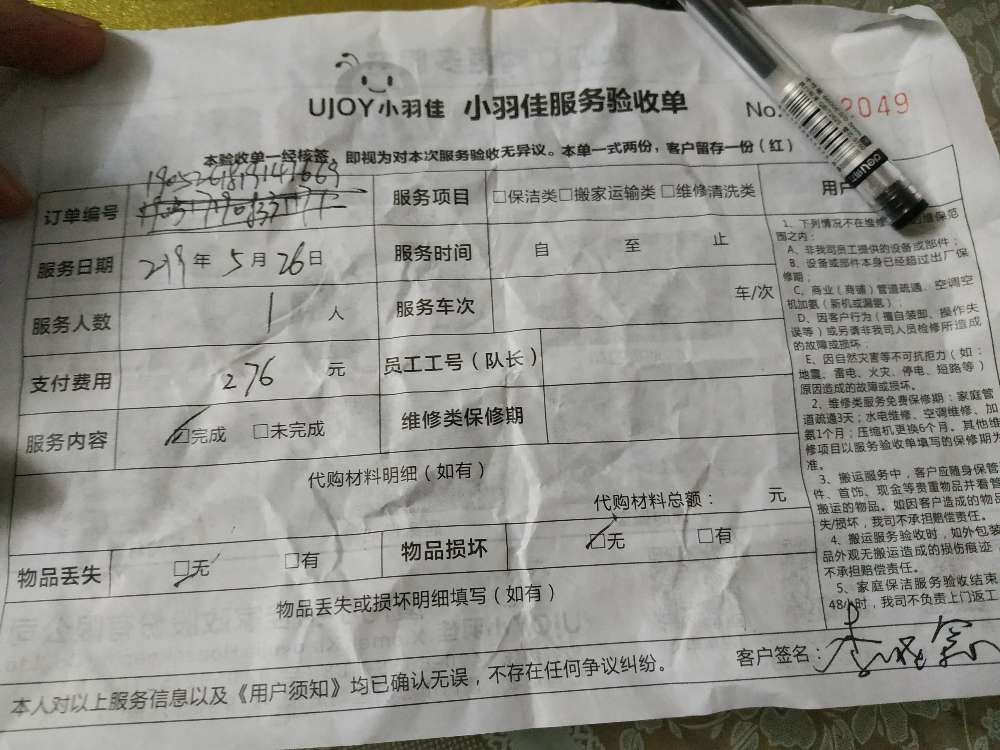 UJOY小羽佳 小羽佳服务验收单 No. 2049
本验收单一经核签，即视为对本次服务验收无异议。本单一式两份，客户留存一份（红）
订单编号
服务项目 □保洁类□搬家运输类 □维修清洗类
用户
服务日期 2019年5月26日
服务时间 自 至 止
服务人数 1 人
服务车次 车/次
支付费用 276 元
员工工号（队长）
服务内容 ☑完成 □未完成
维修类保修期
代购材料明细（如有）
代购材料总额： 元
物品丢失 ☑无 □有
物品损坏 ☑无 □有
物品丢失或损坏明细填写（如有）
本人对以上服务信息以及《用户须知》均已确认无误，不存在任何争议纠纷。
客户签名：
1、下列情况不在维修 维保范
围之内：
A、非我司员工提供的设备或部件；
B、设备或部件本身已经超过出厂保
修期；
C、商业（商铺）管道疏通、空调空
机加氨（新机或漏氨）；
D、因客户行为（擅自装卸、操作失
误等）或另请非我司人员检修所造成
的故障或损坏；
E、因自然灾害等不可抗拒力（如：
地震、雷电、火灾、停电、短路等）
原因造成的故障或损坏。
2、维修类服务免费保修期：家庭管
道疏通3天；水电维修、空调维修、加
氨1个月；压缩机更换6个月。其他维
修项目以服务验收单填写的保修期为
准。
3、搬运服务中，客户应随身保管
件、首饰、现金等贵重物品并看管
搬运的物品。如因客户造成的物品
失/损坏，我司不承担赔偿责任。
4、搬运服务验收时，如外包装
品外观无搬运造成的损伤痕迹，
不承担赔偿责任。
5、家庭保洁服务验收结束
48小时，我司不负责上门返工
deli